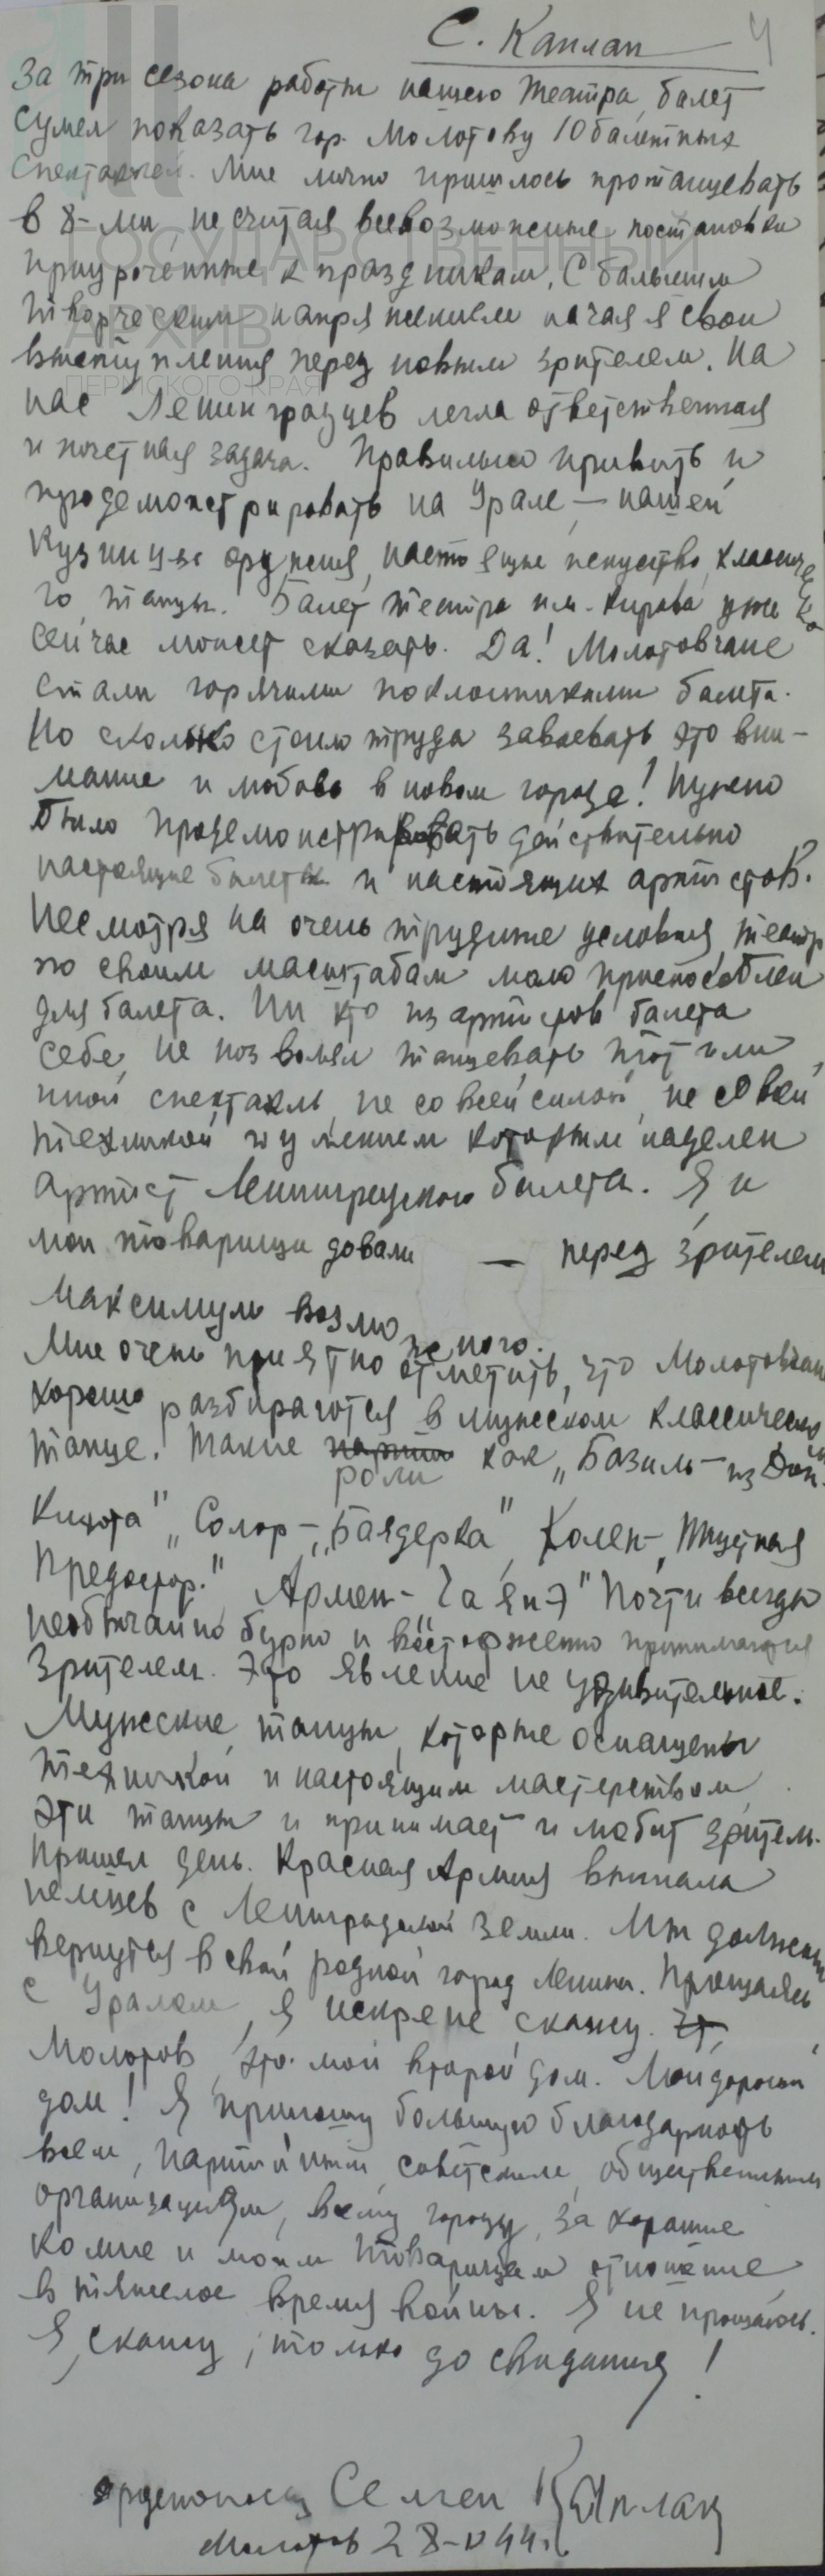 С. Каплан 4
За три сезона работы нашего театра, балет
сумел показать гор. Молотову 10 балетных
спектаклей. Мне лично пришлось протанцевать
в 8-ми, не считая всевозможные постановки
приуроченные к праздникам. С большим
творческим напряжением начал я свои
выступления перед новым зрителем. На
нас Ленинградцев легла ответственная
и почетная задача. Правильно привить и
продемонстрировать на Урале – нашей
кузницы оружия, настоящие искуство, классическо
го танца. Балет театра им. Кирова уже
сейчас может сказать. Да! Молотовчане
стали горячими поклонниками балета.
Но сколько стоило труда завоевать это вни-
мание и любовь в новом городе! Нужно
было продемонстрировать действительно
настоящие балеты и настоящих артистов.
Несмотря на очень трудные условия, театр
по своим масштабам мало приспособлен
для балета. Ни кто из артистов балета
себе, не позволял танцевать тот или
иной спектакль, не со всей силой, не со всей
техникой и умением которым наделен
артист Ленинградского балета. Я и
мои товарищи довали — перед зрителем
максимум возможного.
Мне очень приятно отметить, что Молотовчане
хорошо разбираются в мужском классическом
танце. Такие партии роли как „Базиль – из Дон.
Кихота" „Солор – „Баядерка", Колен – „Тщетная
Предостор." Армен – Гаянэ" Почти всегда
необычайно бурно и восторженно принимается
зрителем. Это явление не удивительное.
Мужские танцы, которые оснащены
техникой и настоящим мастерством,
эти танцы и принимает и любит зритель.
Пришел день. Красная Армия выгнала
немцев с Ленинградской земли. Мы должны
вернутся в свой родной город Ленина. Прощаясь
с Уралом, я искрене скажу. Эт
Молотов, это мой второй дом. Мой дорогой
дом! Я приношу большую благодарность
всем, партийным, советским, общественным
организациям, всему городу, за хорошие
ко мне и моим товарищам отношение
в тяжелое время войны. Я не прощаюсь.
Я скажу, только до свидания!
орденоносец Семен Каплан
Молотов 28-V 44 г.
ГОСУДАРСТВЕННЫЙ
АРХИВ
ПЕРМСКОГО КРАЯ